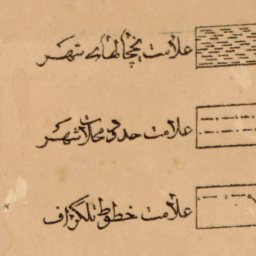 علامت یخچالهای شهر
علامت حدود محلات شهر
علامت خطوط تلگراف